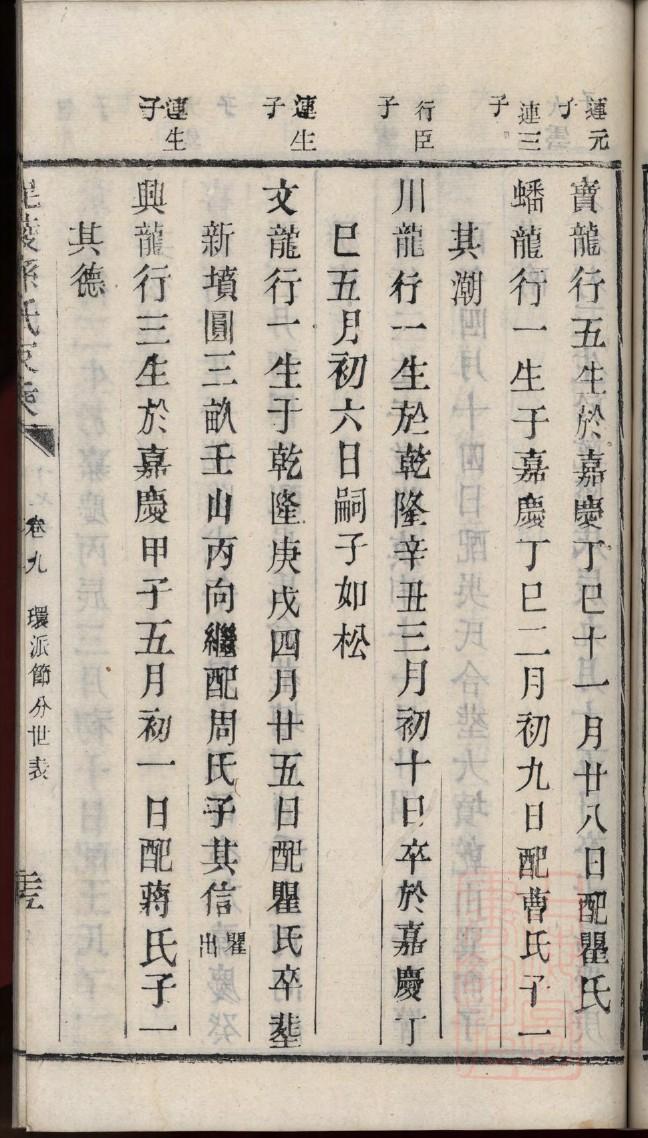 連元子
寶龍行五生於嘉慶丁巳十一月廿八日配瞿氏
連三子
蟠龍行一生于嘉慶丁巳二月初九日配曹氏子一
其潮
行臣子
川龍行一生於乾隆辛丑三月初十日卒於嘉慶丁
巳五月初六日嗣子如松
連生子
文龍行一生于乾隆庚戌四月廿五日配瞿氏卒塟
新墳圓三畝壬山丙向繼配周氏子其信瞿出
連生子
興龍行三生於嘉慶甲子五月初一日配蔣氏子一
其德
陵孫氏家乘
卷九 環派節分世表